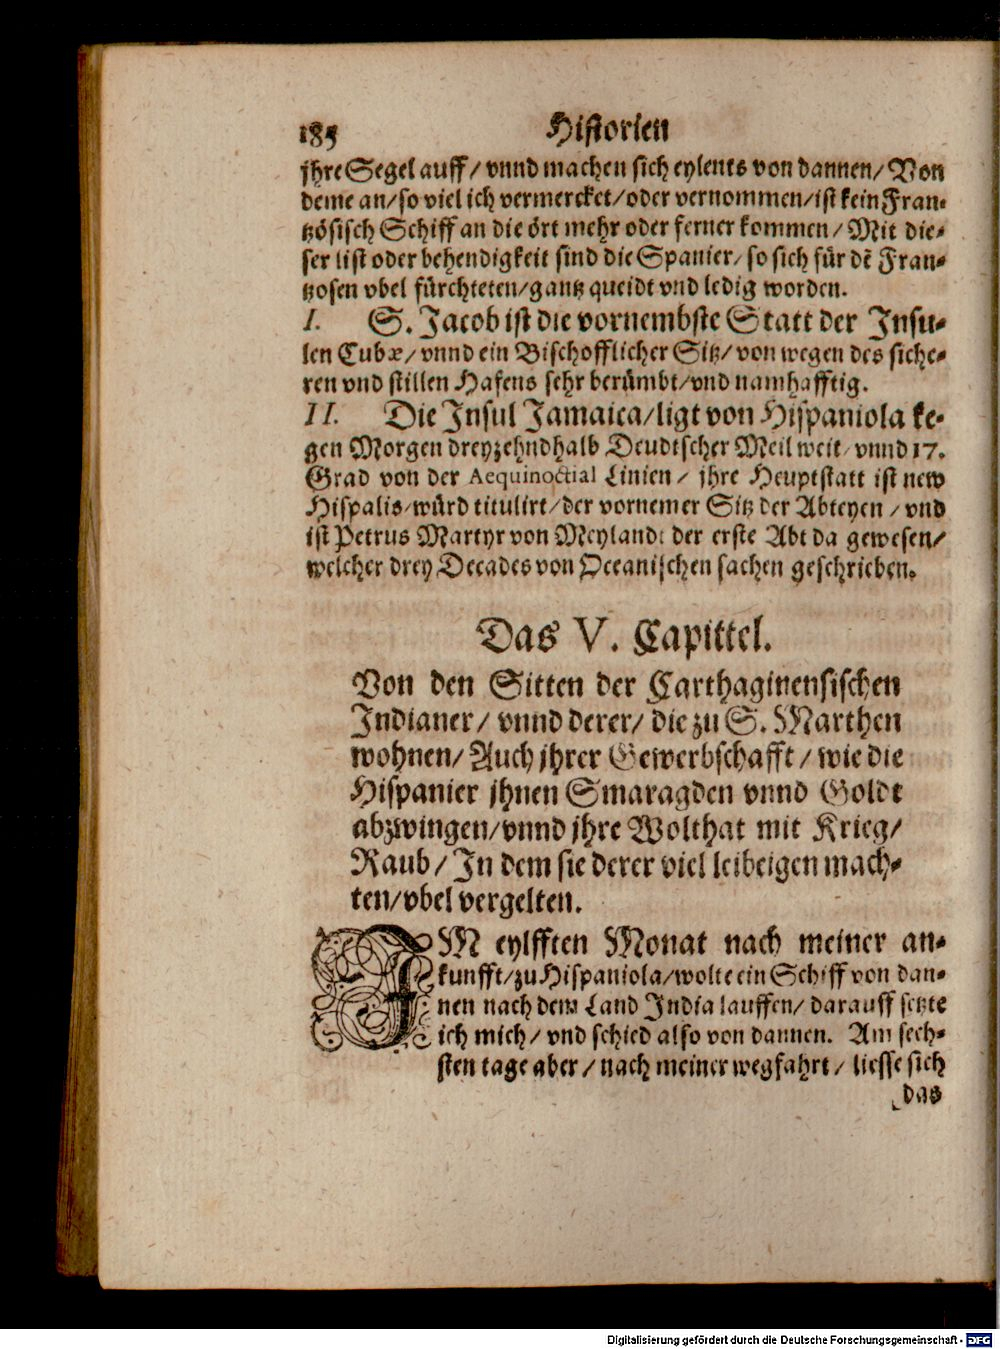 185 Historien
jhre Segel auff/ vnnd machen sich eylents von dannen/ Von
deme an/ so viel ich vermercket/ oder vernommen/ ist kein Fran-
tzösisch Schiff an die ört mehr oder ferner kommen/ Mit die-
ser list oder behendigkeit sind die Spanier/ so sich für dẽ Fran-
tzosen vbel fürchteten/ gantz queidt vnd ledig worden.
I. S. Jacob ist die vornembste Statt der Insu-
len Cubæ/ vnnd ein Bischofflicher Sitz/ von wegen des siche-
ren vnd stillen Hafens sehr berümbt/ vnd namhafftig.
II. Die Insul Jamaica/ ligt von Hispaniola ke-
gen Morgen dreyzehndhalb Deudtscher Meil weit/ vnnd 17.
Grad von der Aequinoctial Linien/ jhre Heuptstatt ist new
Hispalis/ würd titulirt/ der vornemer Sitz der Abteyen/ vnd
ist Petrus Martyr von Meyland: der erste Abt da gewesen/
welcher drey Decades von Oceanischen sachen geschrieben.
Das V. Capittel.
Von den Sitten der Carthaginensischen
Indianer/ vnnd derer/ die zu S. Marthen
wohnen/ Auch jhrer Gewerbschafft/ wie die
Hispanier jhnen Smaragden vnnd Goldt
abzwingen/ vnnd jhre Wolthat mit Krieg/
Raub/ In dem sie derer viel leibeigen mach-
ten/ vbel vergelten.
IM eylfften Monat nach meiner an-
kunfft/ zu Hispaniola/ wolte ein Schiff von dan-
nen nach dem Land India lauffen/ darauff setzte
ich mich/ vnd schied also von dannen. Am sech-
sten tage aber/ nach meiner wegfahrt/ liesse sich
das
Digitalisierung gefördert durch die Deutsche Forschungsgemeinschaft - DFG